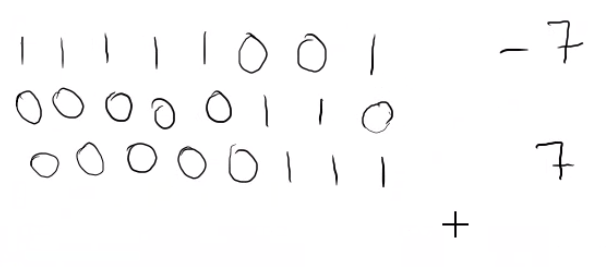 1 1 1 1 1 0 0 1 - 7
0 0 0 0 0 1 1 0
0 0 0 0 0 1 1 1 7
+